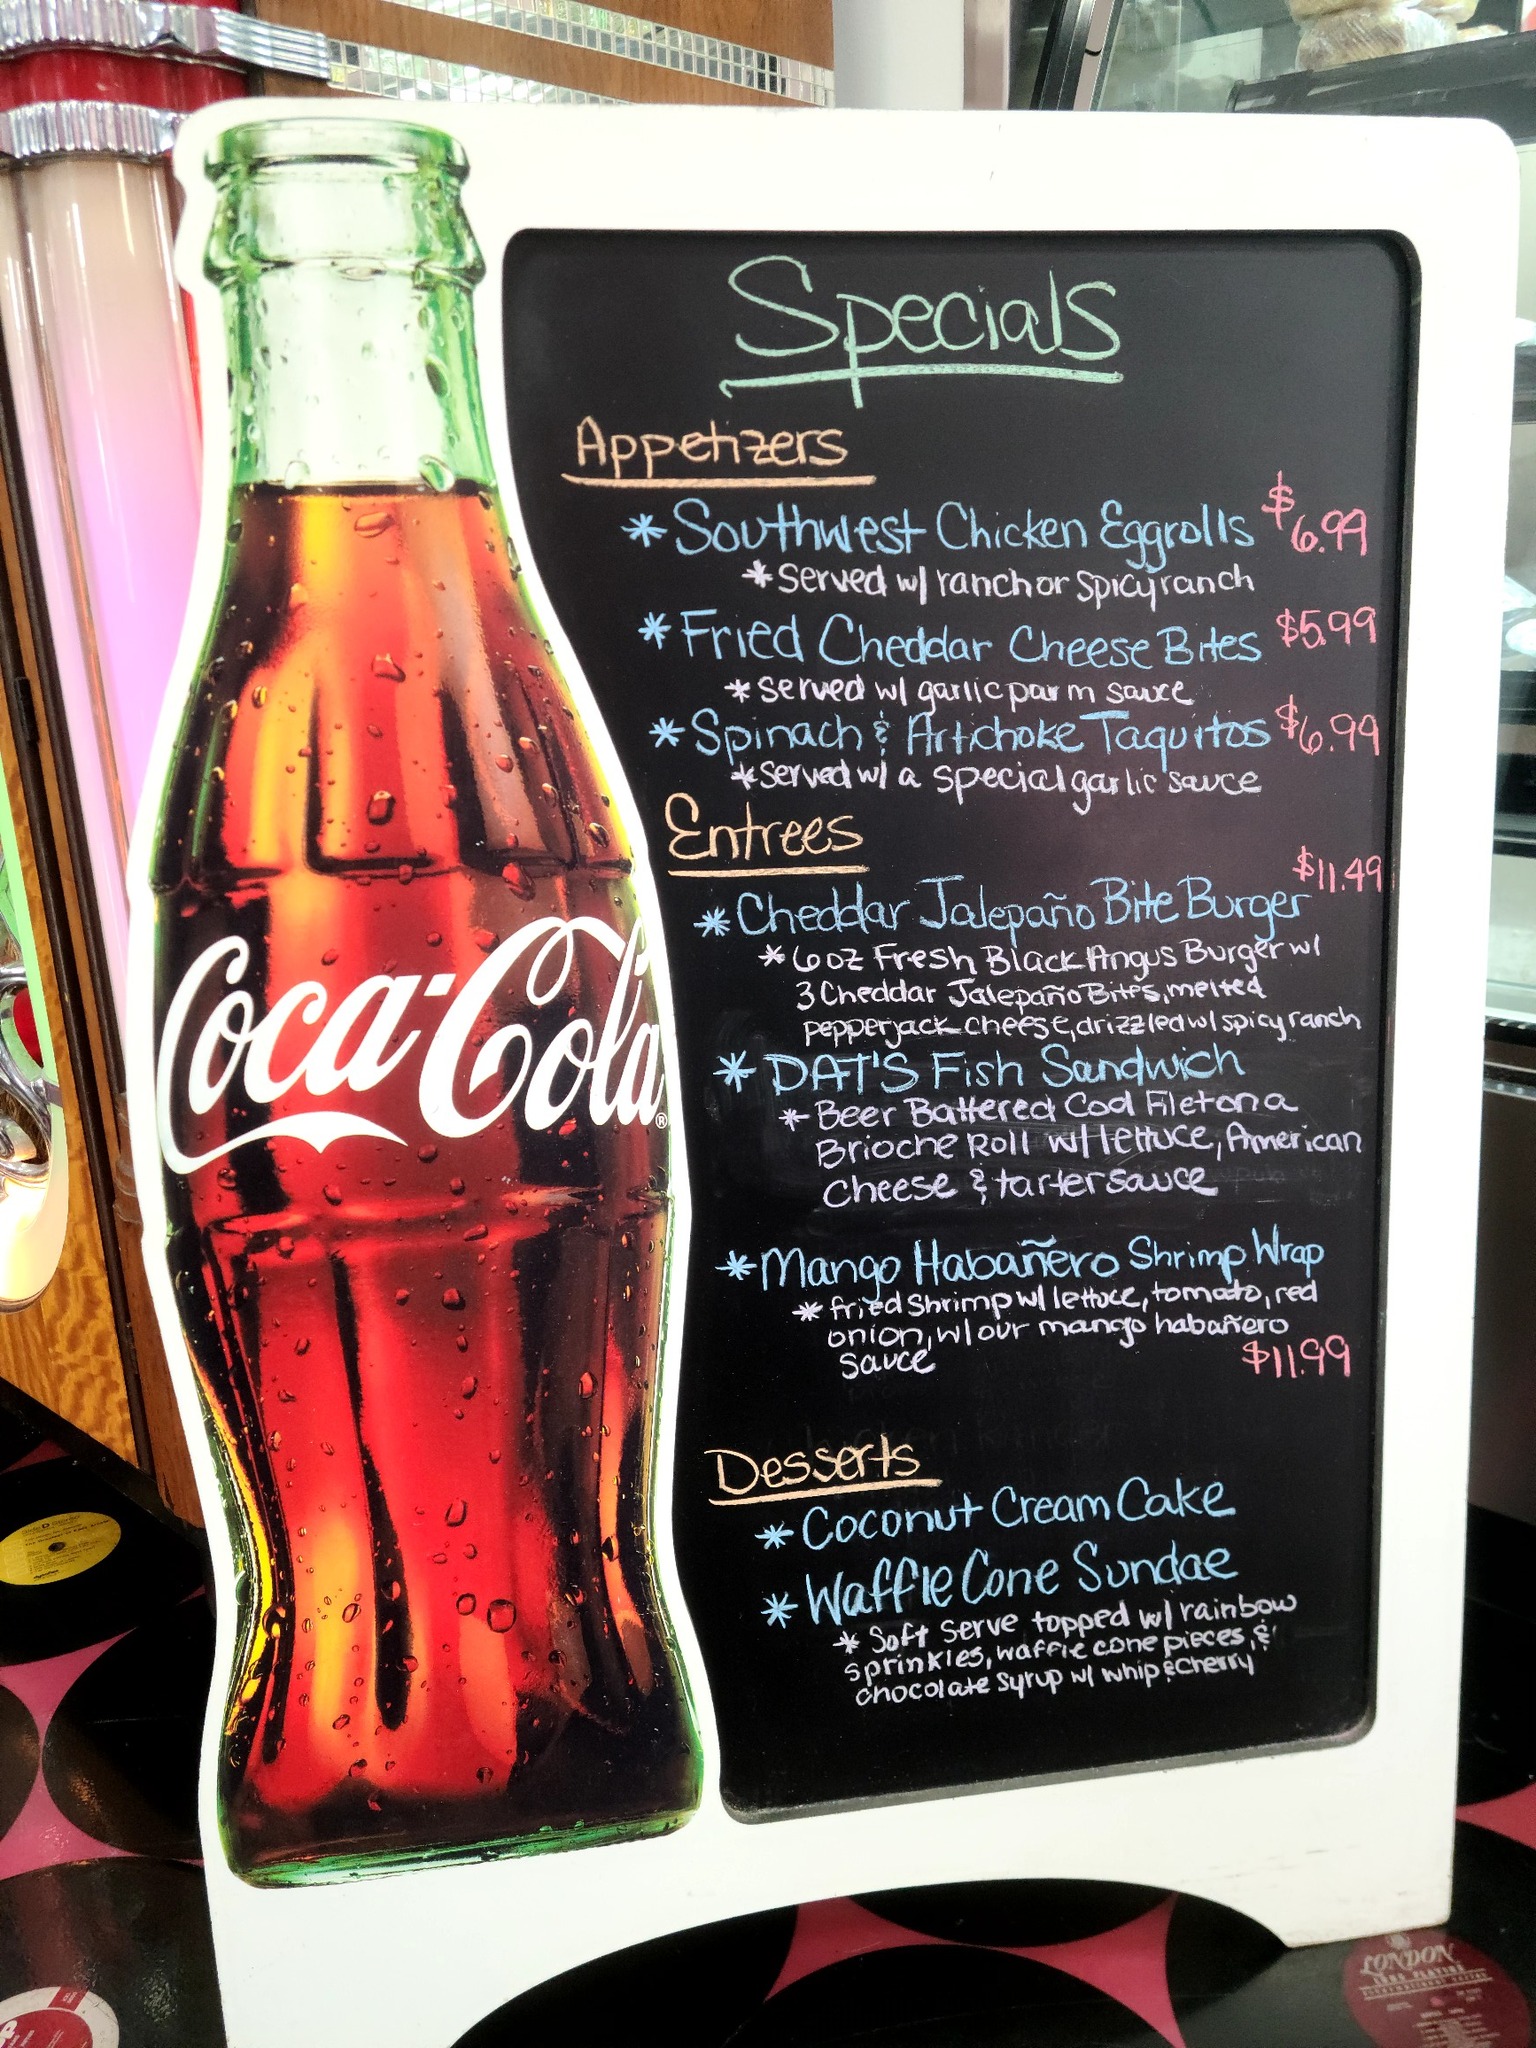 Specials
Appetizers
* Southwest Chicken Eggrolls $6.99
* served w/ ranch or spicy ranch
* Fried Cheddar Cheese Bites $5.99
* served w/ garlic parm sauce
* Spinach & Artichoke Taquitos $6.99
* served w/ a special garlic sauce
Entrees
$11.49
* Cheddar Jalepaño Bite Burger
* 6oz Fresh Black Angus Burger w/
3 Cheddar Jalepaño Bites, melted
pepperjack cheese, drizzled w/ spicy ranch
* DAT'S Fish Sandwich
* Beer Battered Cod Filet on a
Brioche Roll w/ lettuce, American
Cheese & tarter sauce
* Mango Habañero Shrimp Wrap
* fried shrimp w/ lettuce, tomato, red
onion, w/ our mango habañero
sauce $11.99
Desserts
* Coconut Cream Cake
* Waffle Cone Sundae
* Soft serve topped w/ rainbow
sprinkles, waffle cone pieces, &
chocolate syrup w/ whip & cherry
Coca-Cola®
LONDON